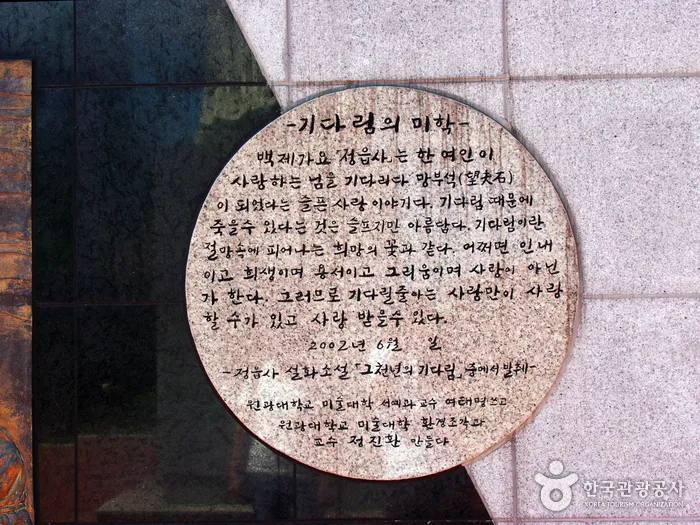 -기다림의 미학-
백제가요「정읍사」는 한 여인이
사랑하는 님을 기다리다 망부석(望夫石)
이 되었다는 슬픈 사랑 이야기다. 기다림 때문에
죽을수 있다는 것은 슬프지만 아름답다. 기다림이란
절망속에 피어나는 희망의 꽃과 같다. 어쩌면 인내
이고 희생이며 용서이고 그리움이며 사랑이 아닌
가 한다. 그러므로 기다릴줄아는 사람만이 사랑
할 수가 있고 사랑 받을수 있다.
2002년 6월 일
-정읍사 설화소설「그천년의 기다림」중에서 발췌-
원광대학교 미술대학 서예과 교수 여태명쓰고
원광대학교 미술대학 환경조각과
교수 정진환 만들다
한국관광공사
KOREA TOURISM ORGANIZATION